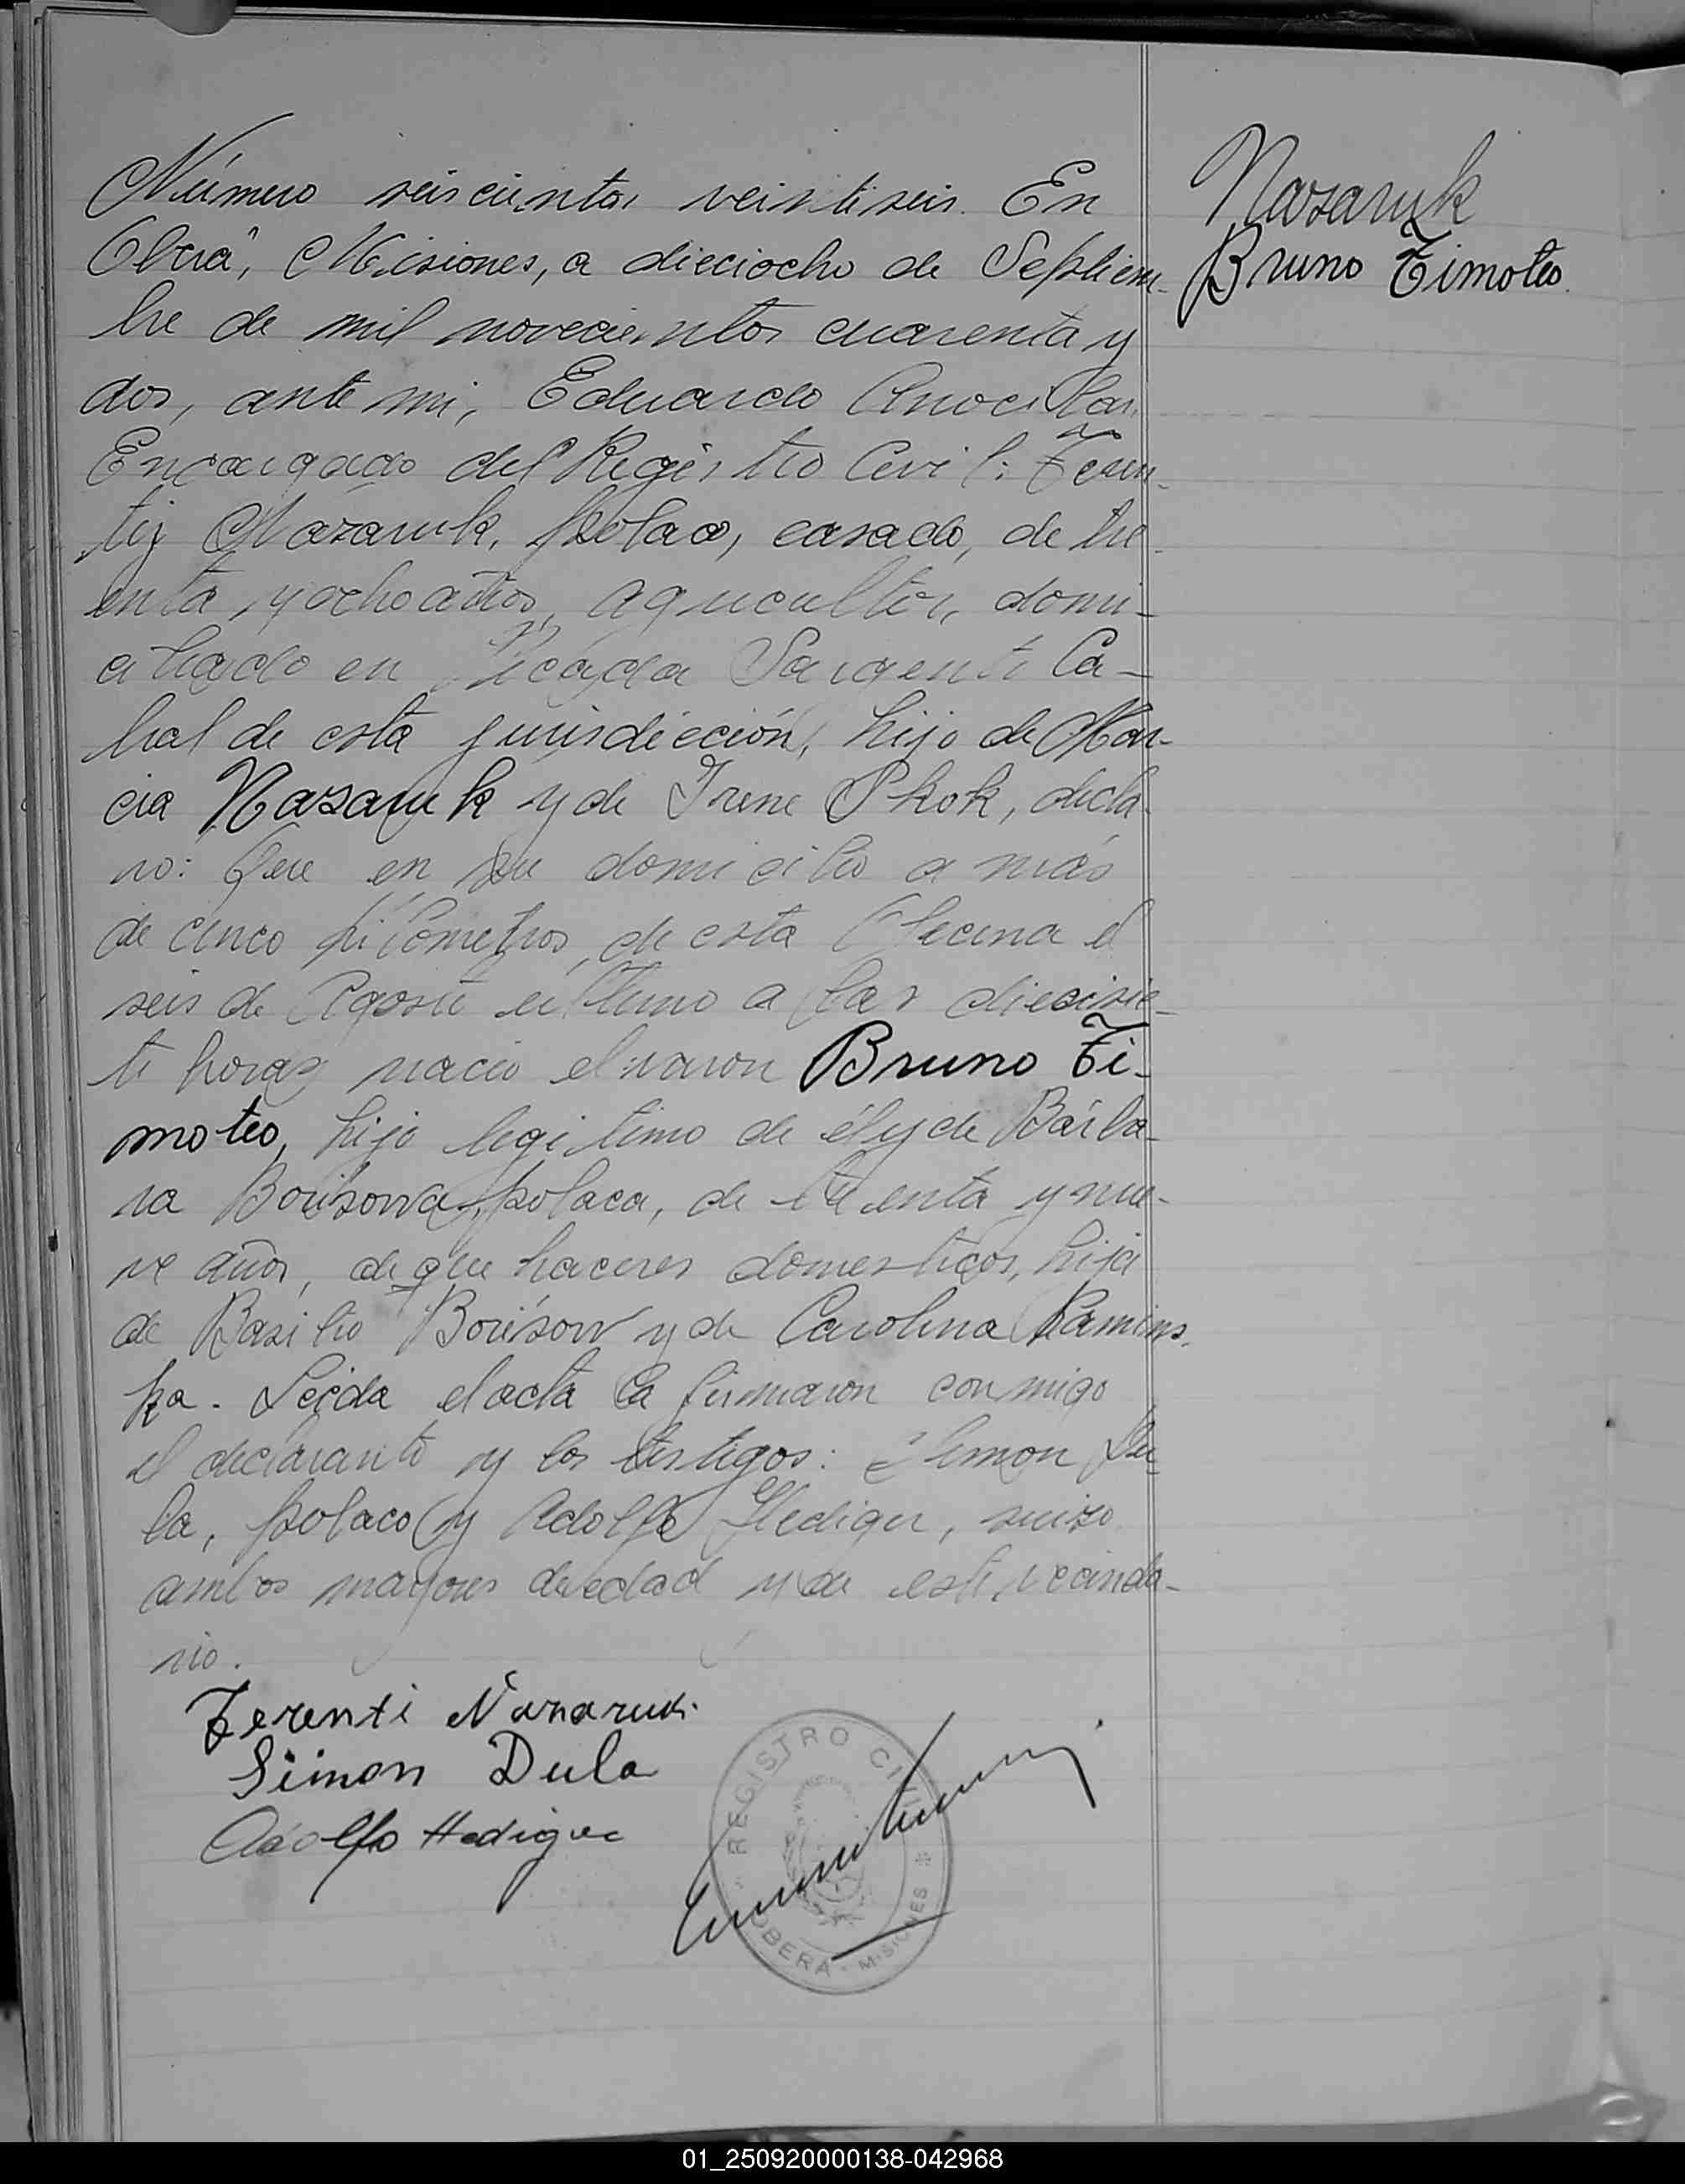 Número seiscientos veintiseis. En
Nazaruk
Oberá, Misiones, a dieciocho de Septiem-
Bruno Timoteo.
bre de mil novecientos cuarenta y
dos, ante mi, Eduardo
Encargado del Registro Civil: Teren-
tij Nazaruk, polaco, casado, de tre-
inta y ocho años, agricultor, domi-
ciliado en Picada Sargento Ca-
bral de esta jurisdicción, hijo de Mar-
cia Nazaruk y de Irene Pkok, decla-
ro: Que en su domicilio a más
de cinco kilómetros de esta Oficina el
seis de Agosto último a las diecisie-
te horas nació el varon Bruno Ti-
moteo, hijo legitimo de él y de Bárba-
ra Borisowa, polaca, de treinta y nue-
ve años, de que haceres domesticos, hija
de Basilio Borisow y de Carolina Kamins-
ka. Leida el acta la firmaron conmigo
el declarante y los testigos: Simon Du-
la, polaco y Adolfo Hediger, suizo
ambos mayores de edad y de este vecinda-
rio.
Terenti Nazaruk.
Simon Dula
Adolfo Hediger
REGISTRO CIVIL
OBERA - MISIONES
01_250920000138-042968